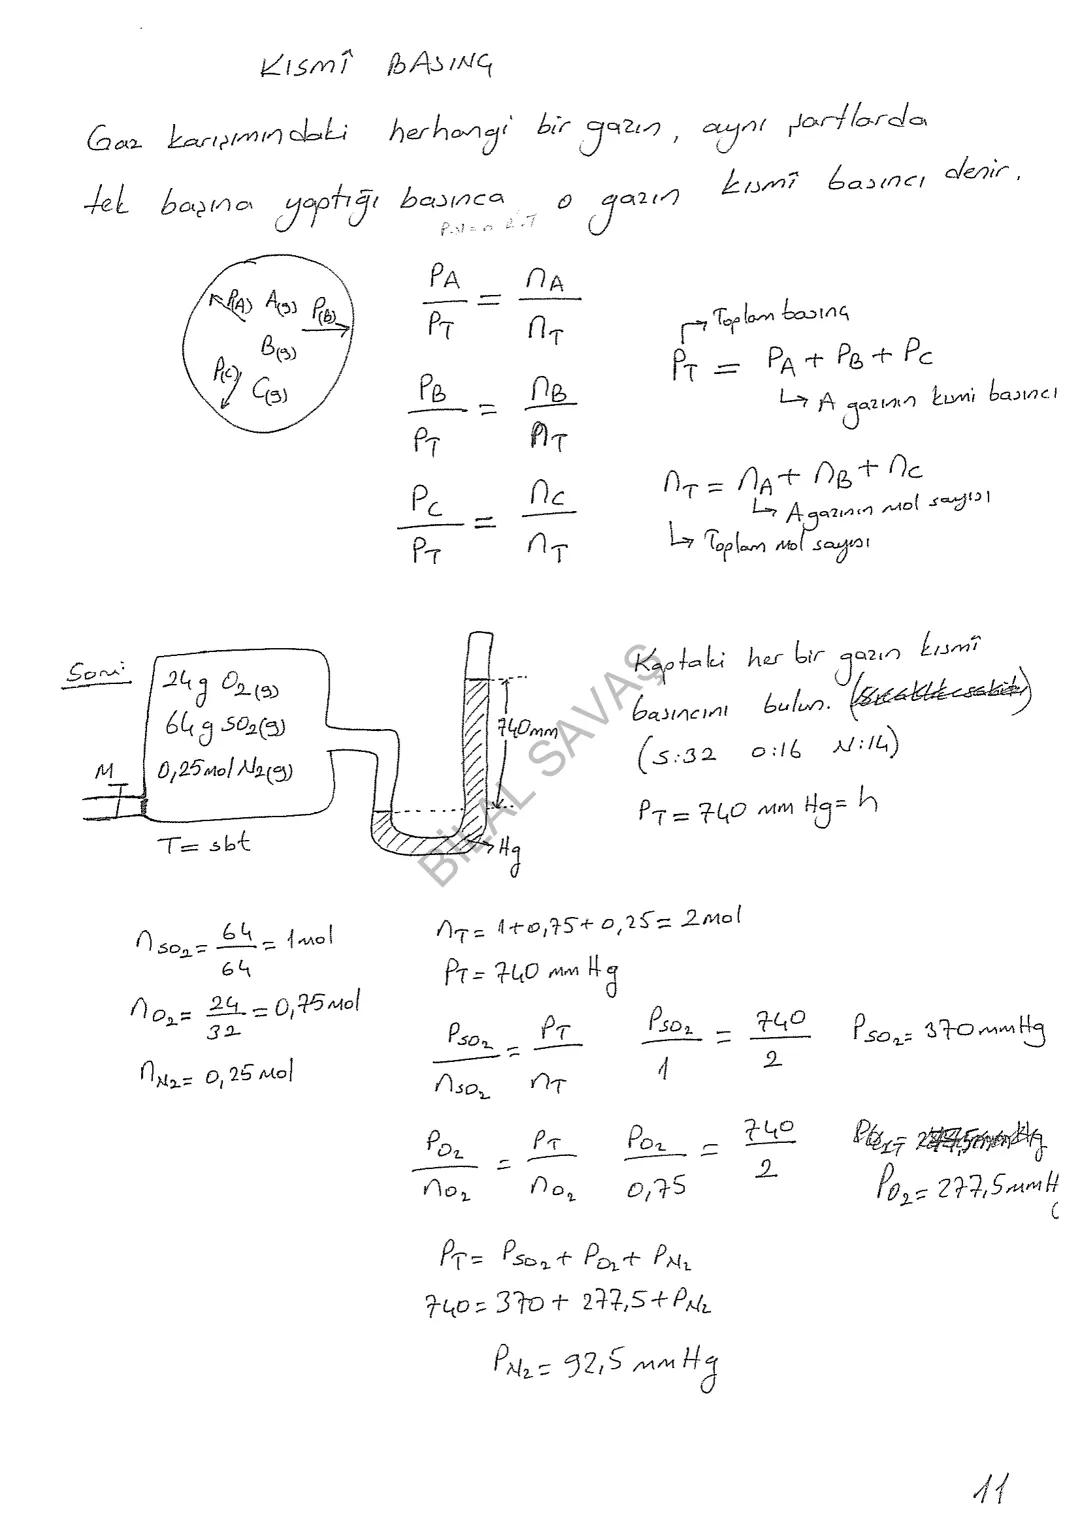 KISMÎ BASINÇ
Gaz karışımındaki herhangi bir gazın, aynı şartlarda
tek başına yaptığı basınca o gazın kısmî basıncı denir.
P.V = n.R.T
P(A) A(g) P(B)
B(g)
P(C) C(g)
PA/PT = nA/nT
PB/PT = nB/nT
PC/PT = nC/nT
Toplam basınç
PT = PA + PB + PC
A gazının kısmi basıncı
nT = nA + nB + nC
A gazının mol sayısı
Toplam mol sayısı
Soru:
24g O2(g)
64g SO2(g)
0,25 mol N2(g)
M
T = sbt
740mm
Hg
Kaptaki her bir gazın kısmî
basıncını bulun.
(S:32 O:16 N:14)
PT = 740 mm Hg = h
BİLAL SAVAŞ
nSO2 = 64/64 = 1 mol
nO2 = 24/32 = 0,75 mol
nN2 = 0,25 mol
nT = 1+0,75+0,25 = 2 mol
PT = 740 mm Hg
PSO2/nSO2 = PT/nT PSO2/1 = 740/2 PSO2 = 370 mmHg
PO2/nO2 = PT/nO2 PO2/0,75 = 740/2
PO2 = 277,5 mmH
PT = PSO2 + PO2 + PN2
740 = 370 + 277,5 + PN2
PN2 = 92,5 mm Hg
11